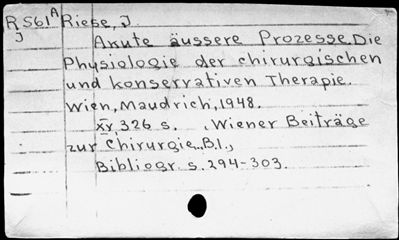 R 561 A Riese, J
J
Akute äussere Prozesse. Die
Physiologie der chirurgischen
und konservativen Therapie.
Wien, Maudrich, 1948.
XV, 326 s. , Wiener Beiträge
zur Chirurgie. B.1.,
Bibliogr. s. 294-303.